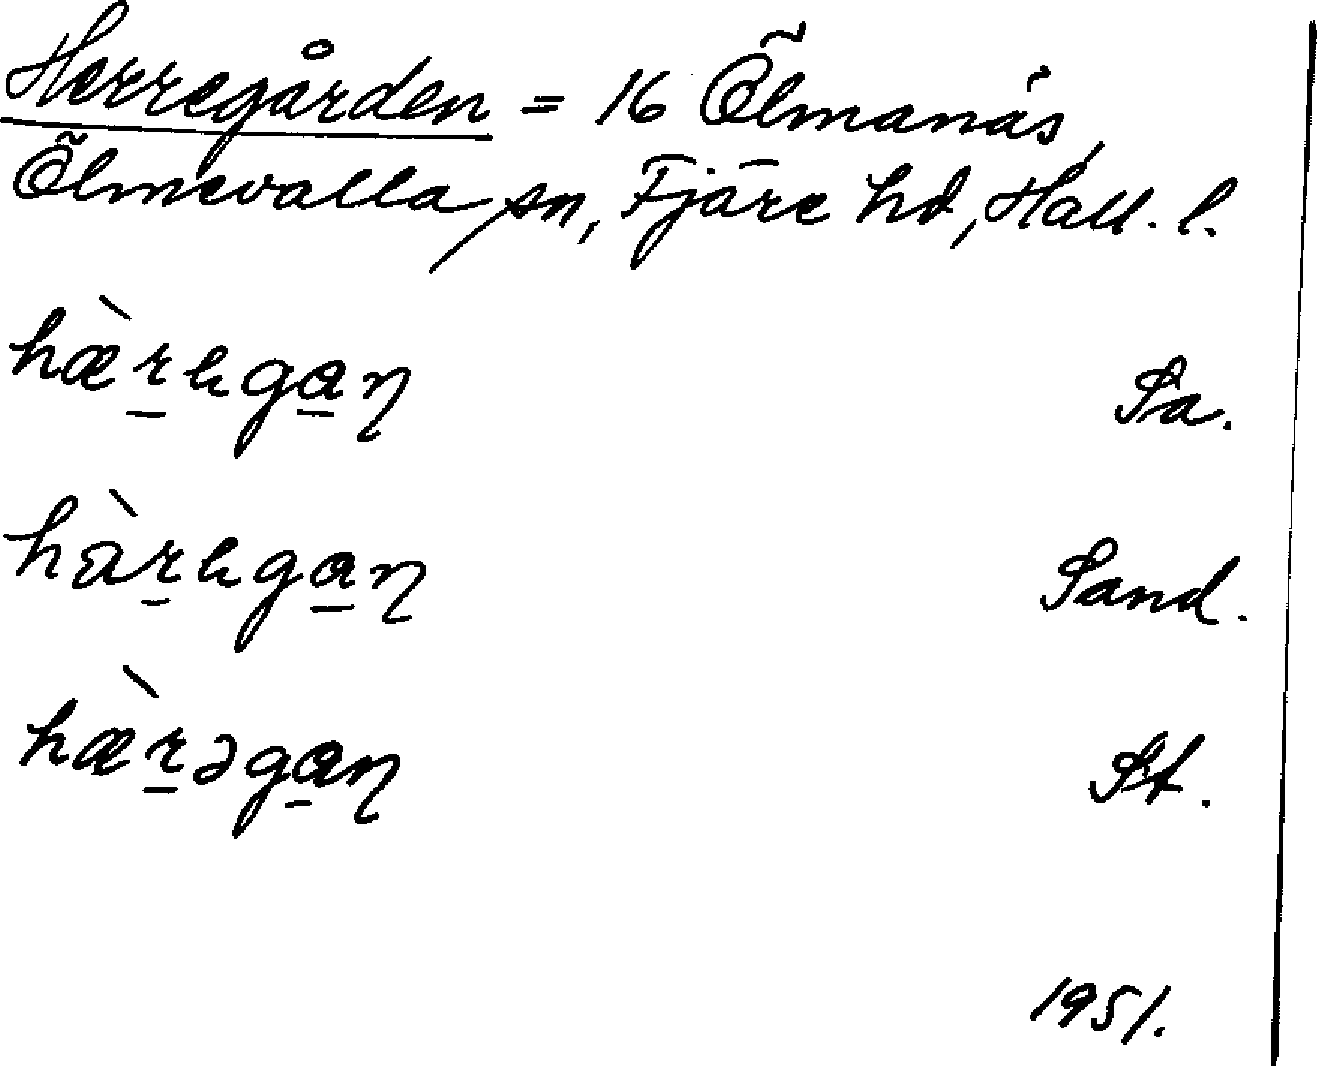 Herregården = 16 Ölmanäs,
Ölmevalla sn, Fjäre hd, Hall. l.
hæ̀r̲ega̲ɳ Sa.
hàr̲ega̲ɳ Sand.
hæ̀r̲əga̲ɳ St.
1951.